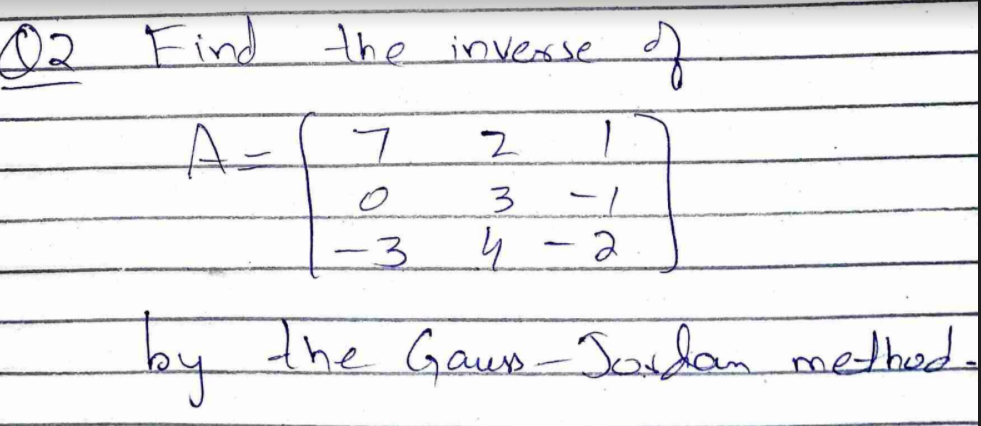 Q2 Find the inverse of
A = [ 7 2 1
0 3 -1
-3 4 -2 ]
by the Gauss-Jordan method.